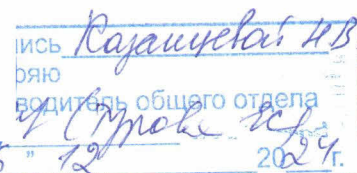 ись Казанцевой НВ
ряю
водитель общего отдела
" 12 2024г.